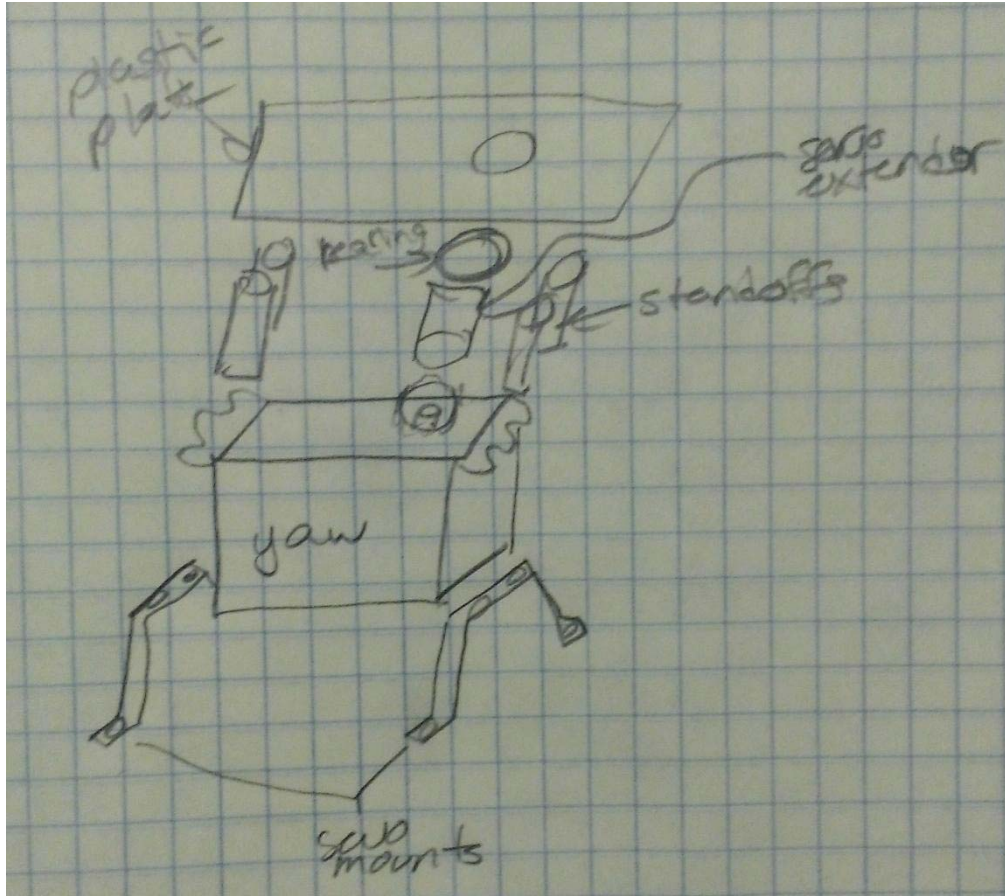 plastic
plate
servo
extender
bearing
standoffs
yaw
servo
mounts